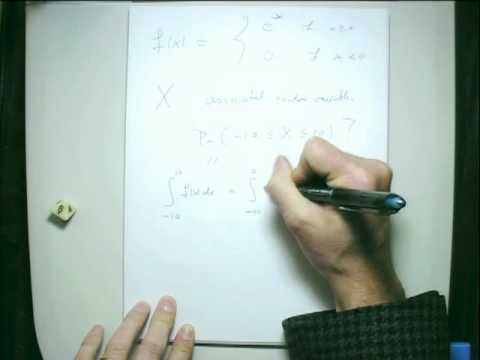 f(x) = { e^-x if x≥0
0 if x<0
X associated random variable.
Pr (-10 ≤ X ≤ 10) ?
//
∫_{-10}^{10} f(x)dx = ∫_{-10}^{0}